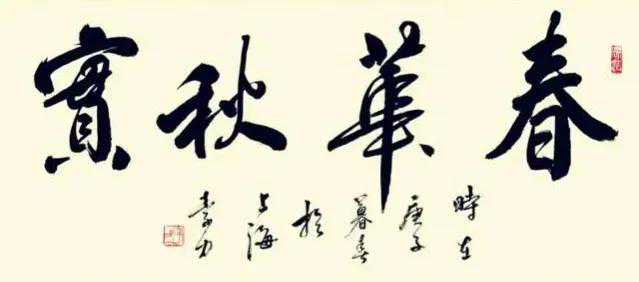 春華秋實
時在
庚子
暮春
於
上海
李力